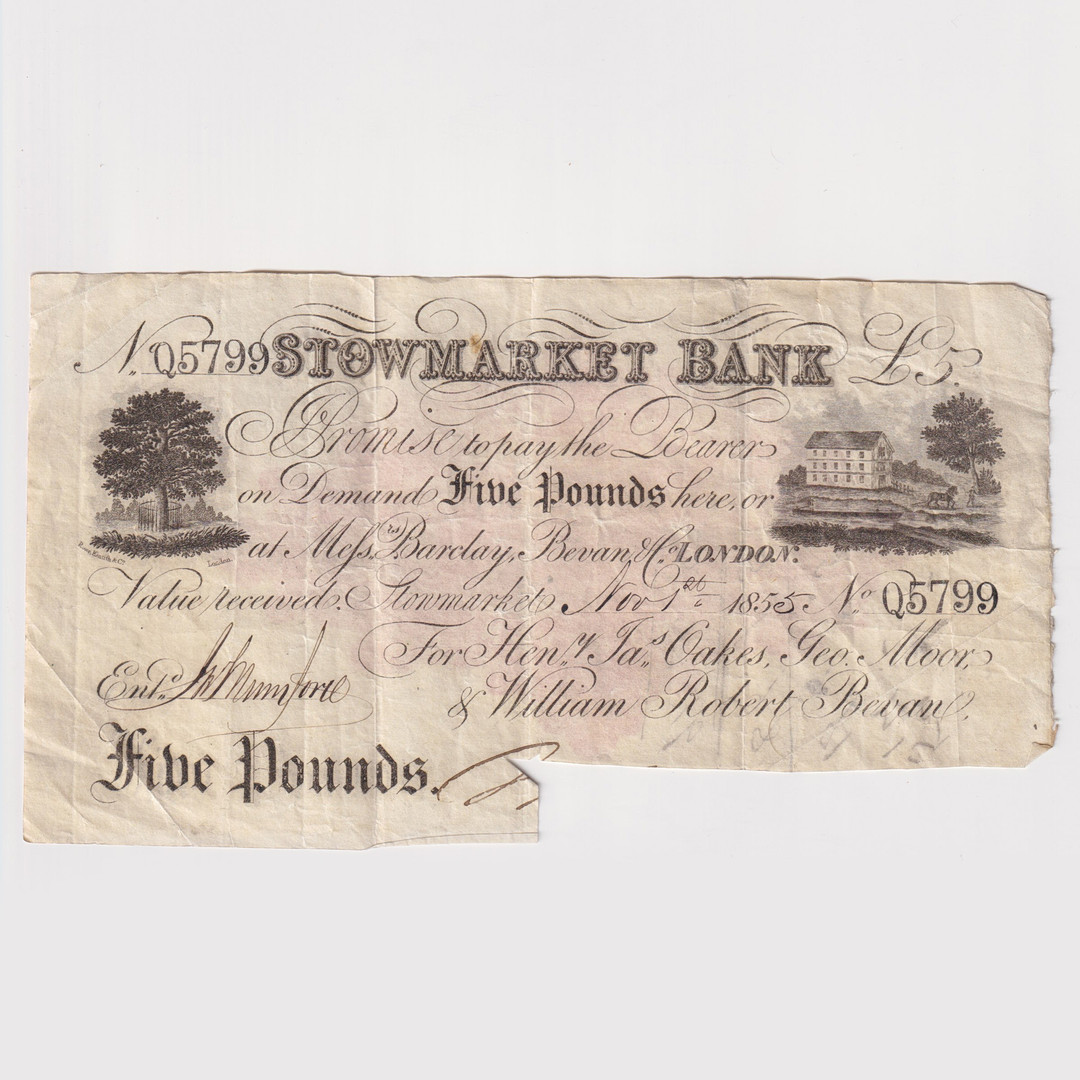 No. Q5799 STOWMARKET BANK £5.
I Promise to pay the Bearer
on Demand Five Pounds here, or
at Messrs. Barclay, Bevan, & Co. LONDON.
London.
Value received. Stowmarket Nov 1st 1855 No. Q5799
For Heny. Jas. Oakes, Geo. Moor,
Entd.
& William Robert Bevan,
Five Pounds.